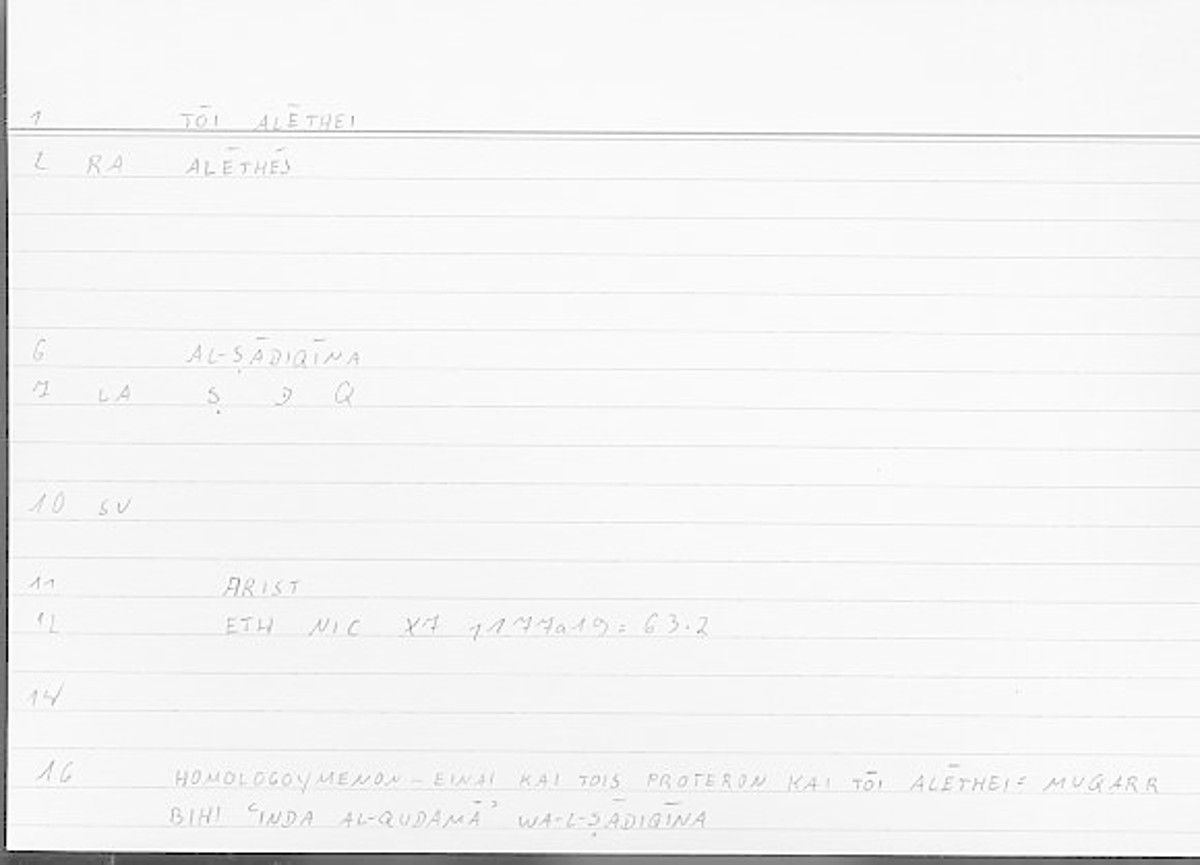 1 TŌI ALĒTHEI
2 RA ALĒTHĒS
6 AL-ṢĀDIQĪNA
7 LA Ṣ D Q
10 SV
11 ARIST
12 ETH NIC X7 , 1177a19 = 63.2
14
16 HOMOLOGOYMENON – EINAI KAI TOIS PROTERON KAI TŌI ALĒTHEI = MUQARR
BIHĪ ʿINDA AL-QUDAMĀʾ WA-L-ṢĀDIQĪNA